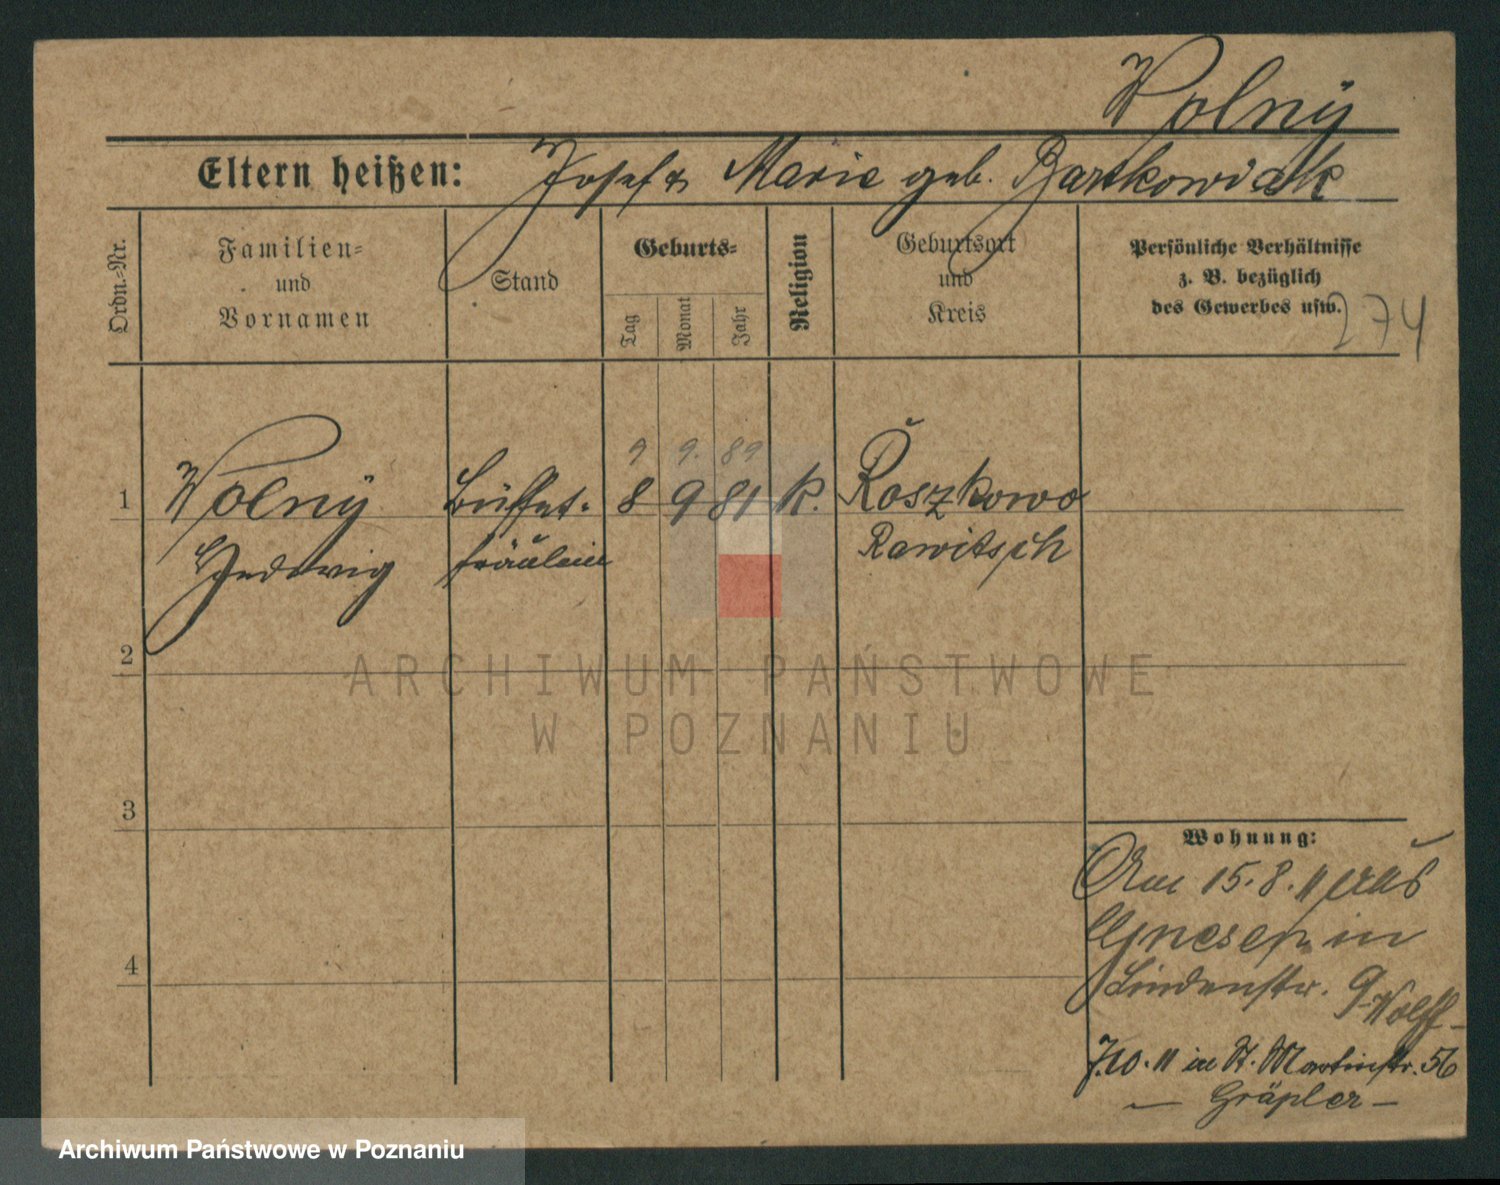 Wolny
Eltern heißen: Josef & Marie geb. Bartkowiak
Ordn.-Nr.
Familien-
und
Vornamen
Stand
Geburts-
Tag
Monat
Jahr
Religion
Geburtsort
und
Kreis
Persönliche Verhältnisse
z. B. bezüglich
des Gewerbes usw.
274
9 9. 89
1 Wolny Büffet- 8 9 81 K. Roszkowo
Hedwig fräulein Rawitsch
2
ARCHIWUM PAŃSTWOWE
W POZNANIU
3
Wohnung:
Am 15.8.11 aus
Gnesen in
4
Lindenstr. 9
-Wolff-
7.10.11 in St. Martinstr. 56
- Gräpler -
Archiwum Państwowe w Poznaniu